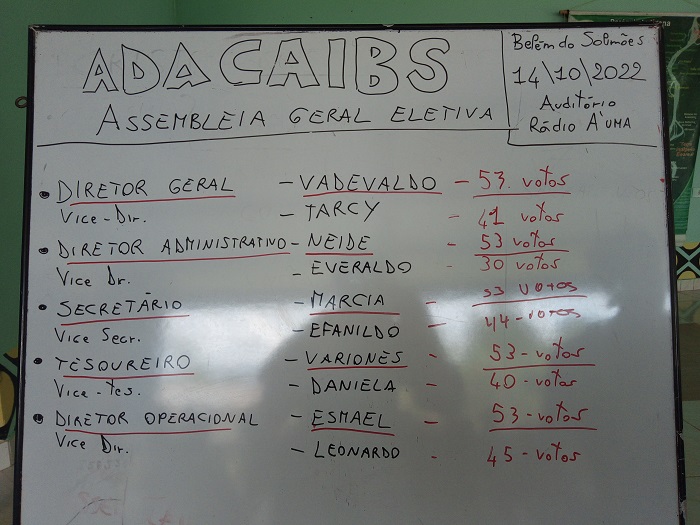 ADACAIBS
ASSEMBLEIA GERAL ELETIVA
Belém do Solimões
14\10\2022
Auditório
Rádio A'UMA
• DIRETOR GERAL - VADEVALDO - 53 votos
Vice-Dir. - TARCY - 41 votos
• DIRETOR ADMINISTRATIVO - NEIDE - 53 votos
Vice Dr. - EVERALDO - 30 votos
• SECRETÁRIO - MARCIA - 53 votos
Vice Secr. - EFANILDO - 44-votos
• TESOUREIRO - VARIONES - 53-votos
Vice-tes. - DANIELA - 40-votos
• DIRETOR OPERACIONAL - ESMAEL - 53-votos
Vice Dir. - LEONARDO - 45-votos